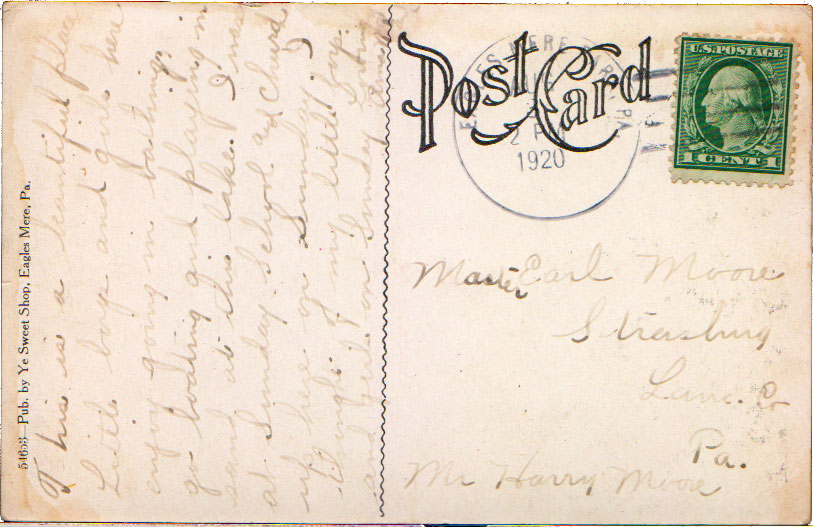 54653—Pub. by Ye Sweet Shop, Eagles Mere, Pa.
This is a beautiful place
Little boys and girls here
enjoy going in bathing.
go boating and playing in
sand at the lake. I was
at Sunday School and Church
up here on Sunday.
thought of my little boys
and girls on Sunday
Post Card
EAGLES MERE PA
2 PM
1920
U.S. POSTAGE
1 CENT 1
Master Earl Moore
Strasburg
Lanc. Co
Pa.
Mr Harry Moore